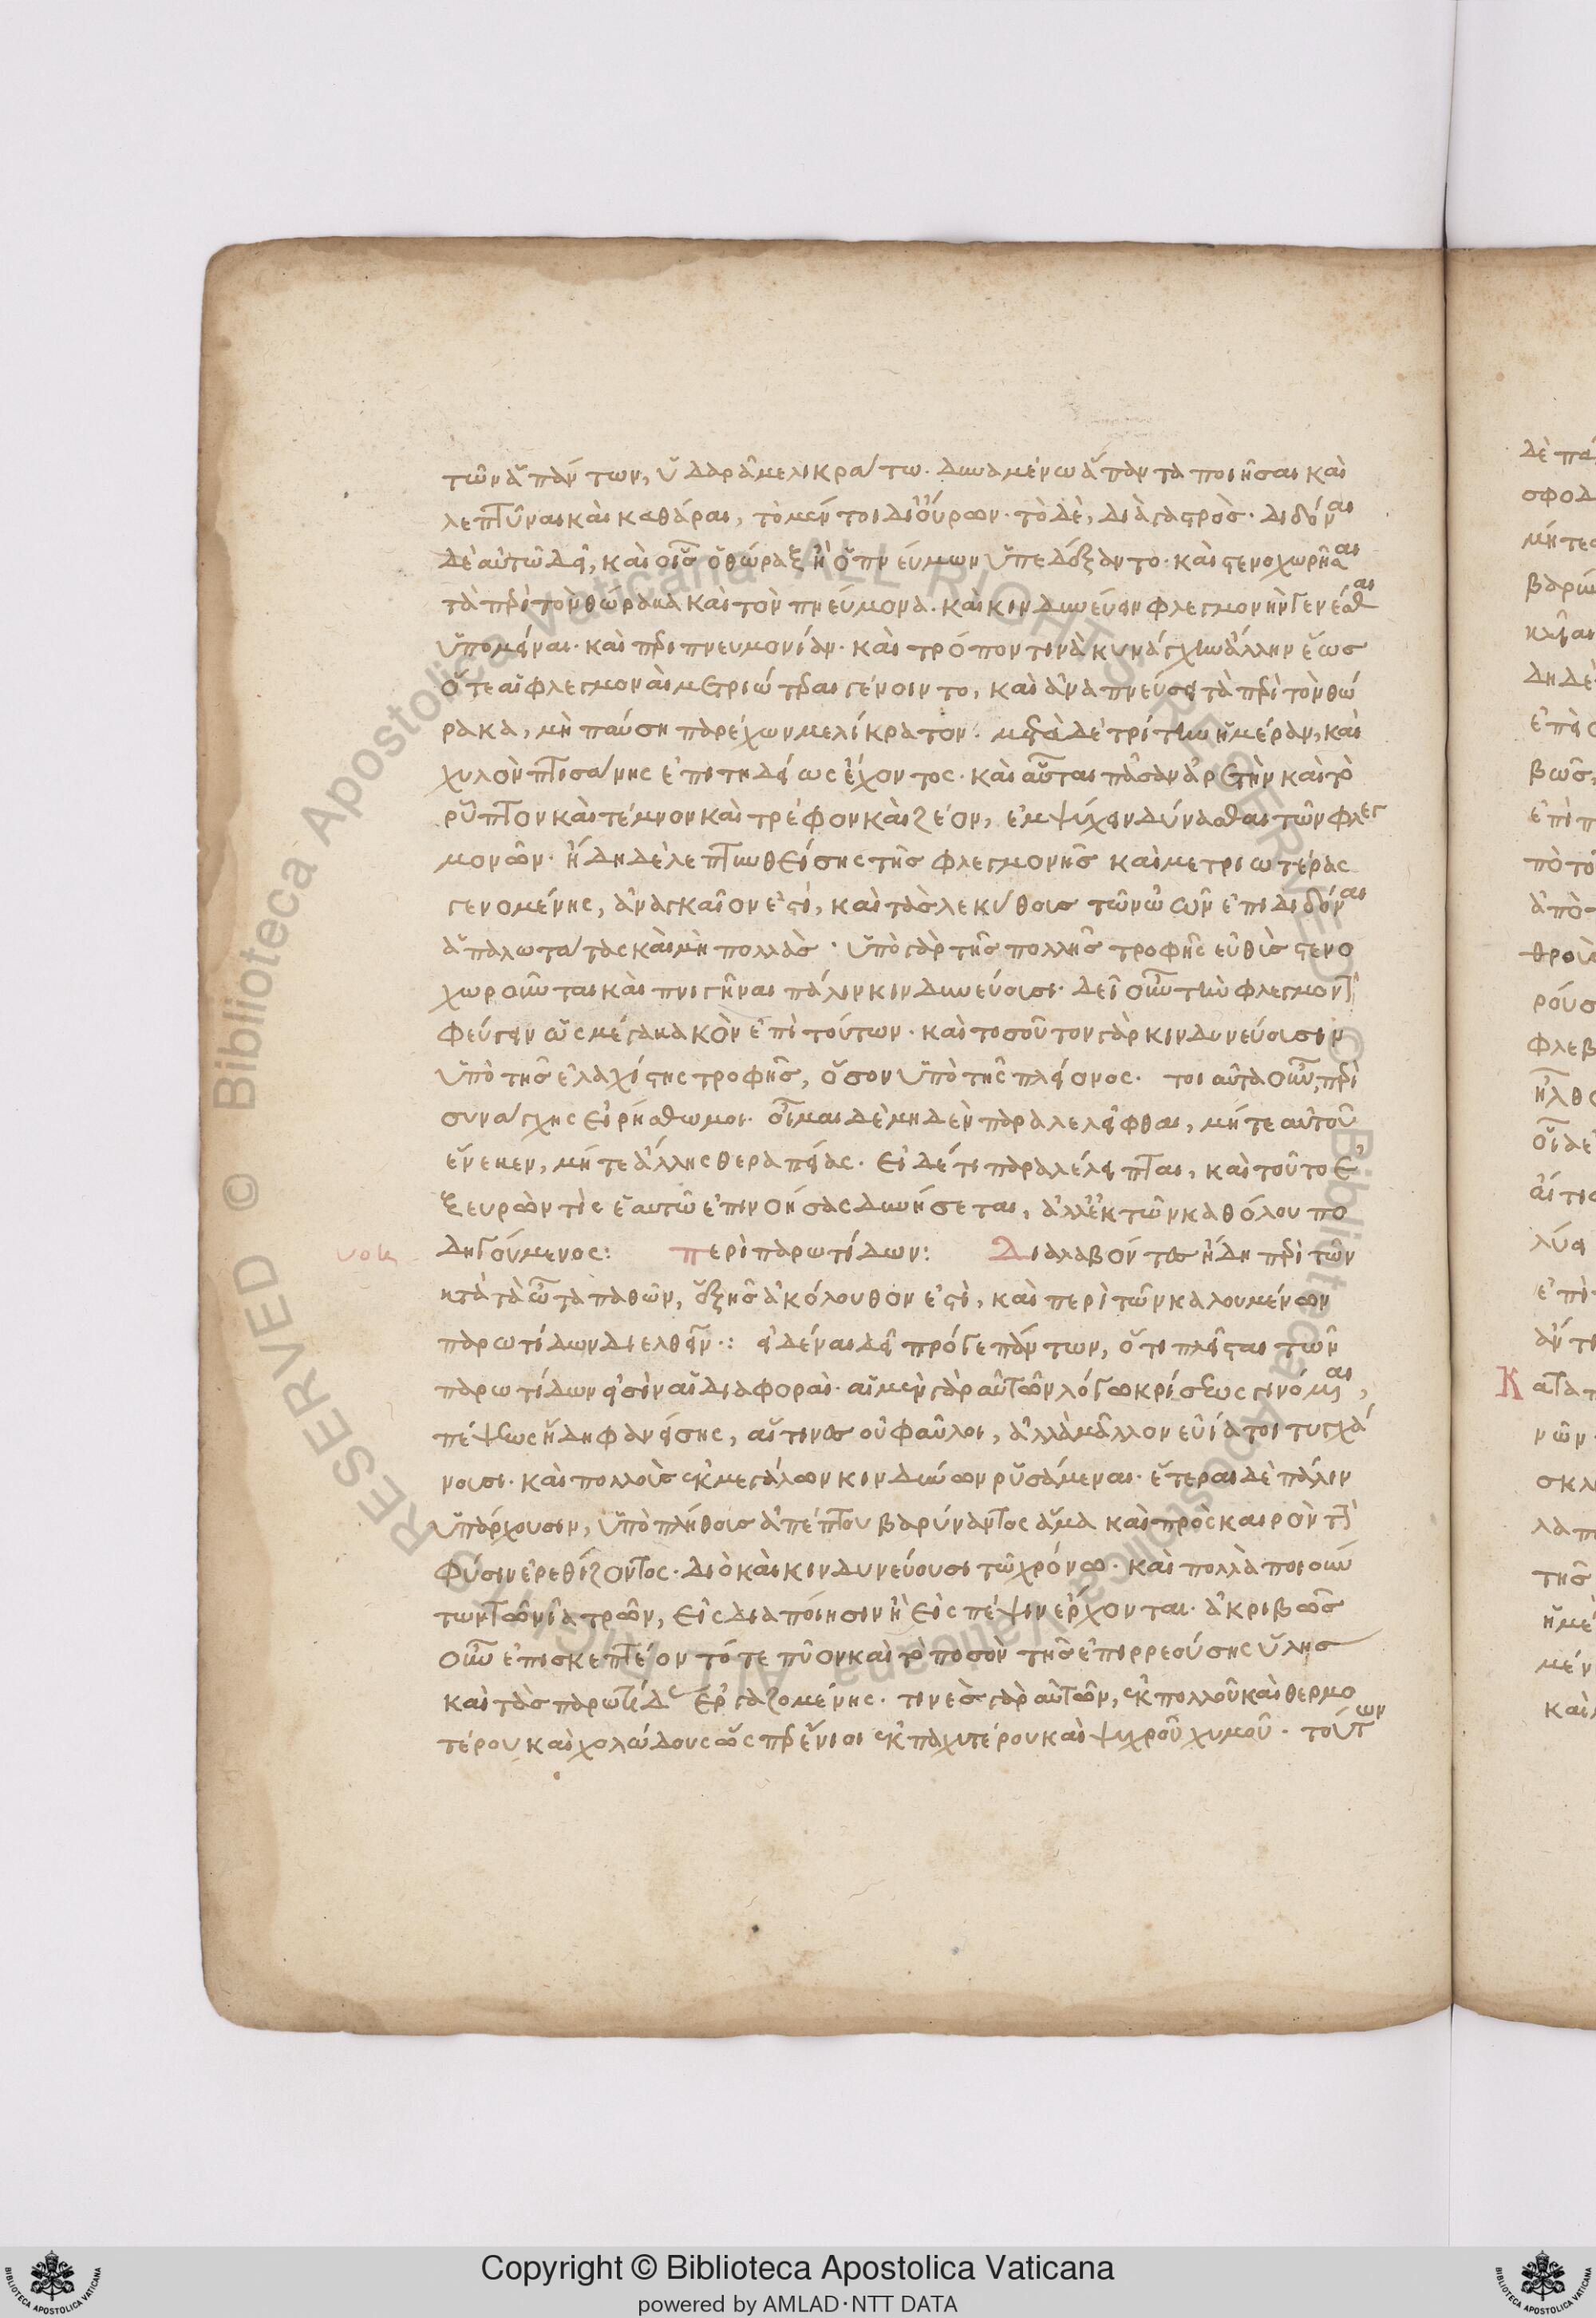 τῶν ἁπάντων, ὑδαρᾶ μελικράτω. δυναμένω ἅπαντα ποιῆσαι καὶ
λεπτῦναι καὶ καθάραι, τὸ μέν τοι δι' οὔρων. τὸ δὲ, διὰ γαστρός. διδόναι
δὲ αὐτῶ δεῖ, καὶ οἷς ὁ θώραξ ἢ ὁ πνεύμων ὑπεδέξαντο. καὶ στενοχωρῆσαι
τὰ περὶ τὸν θώρακα καὶ τὸν πνεύμονα. καὶ κινδυνεύειν φλεγμονὴν γενέσθαι
ὑπομεῖναι. καὶ περιπνευμονίαν. καὶ τρόπον τινὰ κυνάγχην ἄλλην ἕως
ὅτε αἱ φλεγμοναὶ μετριώτεραι γένοιντο, καὶ ἀναπνεύση τὰ περὶ τὸν θώ
ρακα, μὴ παύση παρέχων μελίκρατον. μετὰ δὲ τρίτην ἡμέραν, καὶ
χυλὸν πτισάνης ἐπιτηδείως ἔχοντος. καὶ αὗται πᾶσαν ἀρετὴν καὶ τὸ
ῥύπτον καὶ τέμνον καὶ τρέφον καὶ ζέον, ἐμψύχειν δύνασθαι τῶν φλεγ
μονῶν. ἤδη δὲ λεπτυνθείσης τῆς φλεγμονῆς καὶ μετριωτέρας
γενομένης, ἀναγκαῖον ἐστί, καὶ τὰς λεκίθους τῶν ὠῶν ἐπιδιδόναι
ἁπαλωτάτας καὶ μὴ πολλάς. ὑπὸ γὰρ τῆς πολλῆς τροφῆς εὐθὺς στενο
χωροῦνται καὶ πνιγῆναι πάλιν κινδυνεύουσι. δεῖ οὖν τὴν φλεγμονὴν
φεύγειν ὡς μέγα κακὸν ἐπὶ τούτων. καὶ τοσοῦτον γὰρ κινδυνεύουσιν
ὑπὸ τῆς ἐλαχίστης τροφῆς, ὅσον ὑπὸ τῆς πλείονος. τοιαῦτα οὖν, περὶ
συνάγχης εἰρήσθω μοι. οἶμαι δὲ μηδὲν παραλελεῖφθαι, μήτε αὐτοῦ
ἕνεκεν, μήτε ἄλλης θεραπείας. εἰ δέ τι παραλέλειπται, καὶ τοῦτο ἐ
ξευρών τις ἑαυτῶ ἐπινοήσας δυνήσεται, ἀλλ' ἐκ τῶν καθόλου πο
δηγούμενος: περὶ παρωτίδων: Διαλαβόντες ἤδη περὶ τῶν
κατὰ τὰ ὦτα παθῶν, ἑξῆς ἀκόλουθον ἐστὶ, καὶ περὶ τῶν καλουμένων
παρωτίδων διελθεῖν.: εἰδέναι δεῖ πρό γε πάντων, ὅτι πλεῖσται τῶν
παρωτίδων εἰσὶν αἱ διαφοραί. αἱ μὲν γὰρ αὐτῶν λόγω κρίσεως γινόμεναι,
πέψεως ἤδη φανείσης, αἵτινες οὐ φαῦλοι, ἀλλὰ μᾶλλον εὐίατοι τυγχά
νουσι. καὶ πολλοὺς ἐκ μεγάλων κινδύνων ῥυσάμεναι. ἕτεραι δὲ πάλιν
ὑπάρχουσιν, ὑπὸ πλήθους ἀπέπτου βαρύναντος ἅμα καὶ πρὸς καιρὸν τὴν
φύσιν ἐρεθίζοντος. διὸ καὶ κινδυνεύουσι τῶ χρόνω. καὶ πολλὰ ποιούν
των τῶν ἰατρῶν, εἰς διαπόιησιν ἢ εἰς πέψιν ἔρχονται. ἀκριβῶς
οὖν ἐπισκεπτέον τό τε πῦον καὶ τὸ ποσὸν τῆς ἐπιρρεούσης ὕλης
καὶ τὰς παρωτίδας ἐργαζομένης. τινὲς γὰρ αὐτῶν, ἐκ πολλοῦ καὶ θερμο
τέρου καὶ χολώδους ὥσπερ ἔνιοι ἐκ παχυτέρου καὶ ψυχροῦ χυμοῦ. τούτων